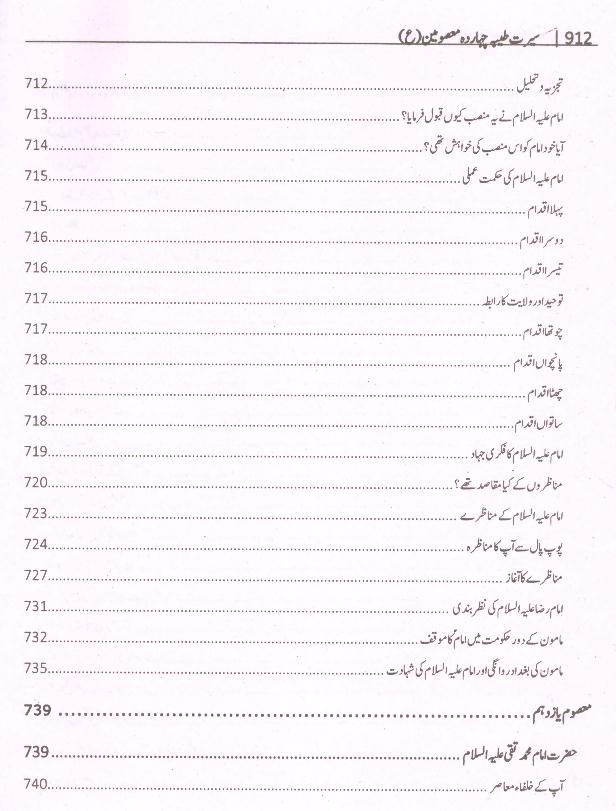 912 | سیرت طیبہ چہاردہ معصومین (ع)
تجزیہ و تحلیل ........ 712
امام علیہ السلام نے یہ منصب کیوں قبول فرمایا؟ ........ 713
آیا خود امام کو اس منصب کی خواہش تھی؟ ........ 714
امام علیہ السلام کی حکمت عملی ........ 715
پہلا اقدام ........ 715
دوسرا اقدام ........ 716
تیسرا اقدام ........ 716
توحید اور ولایت کا رابطہ ........ 717
چوتھا اقدام ........ 717
پانچواں اقدام ........ 718
چھٹا اقدام ........ 718
ساتواں اقدام ........ 718
امام علیہ السلام کا فکری جہاد ........ 719
مناظروں کے کیا مقاصد تھے؟ ........ 720
امام علیہ السلام کے مناظرے ........ 723
پوپ پال سے آپ کا مناظرہ ........ 724
مناظرے کا آغاز ........ 727
امام رضا علیہ السلام کی نظر بندی ........ 731
مامون کے دور حکومت میں امامؑ کا موقف ........ 732
مامون کی بغداد روانگی اور امام علیہ السلام کی شہادت ........ 735
معصوم یازدہم ........ 739
حضرت امام محمد تقی علیہ السلام ........ 739
آپ کے خلفاء معاصر ........ 740